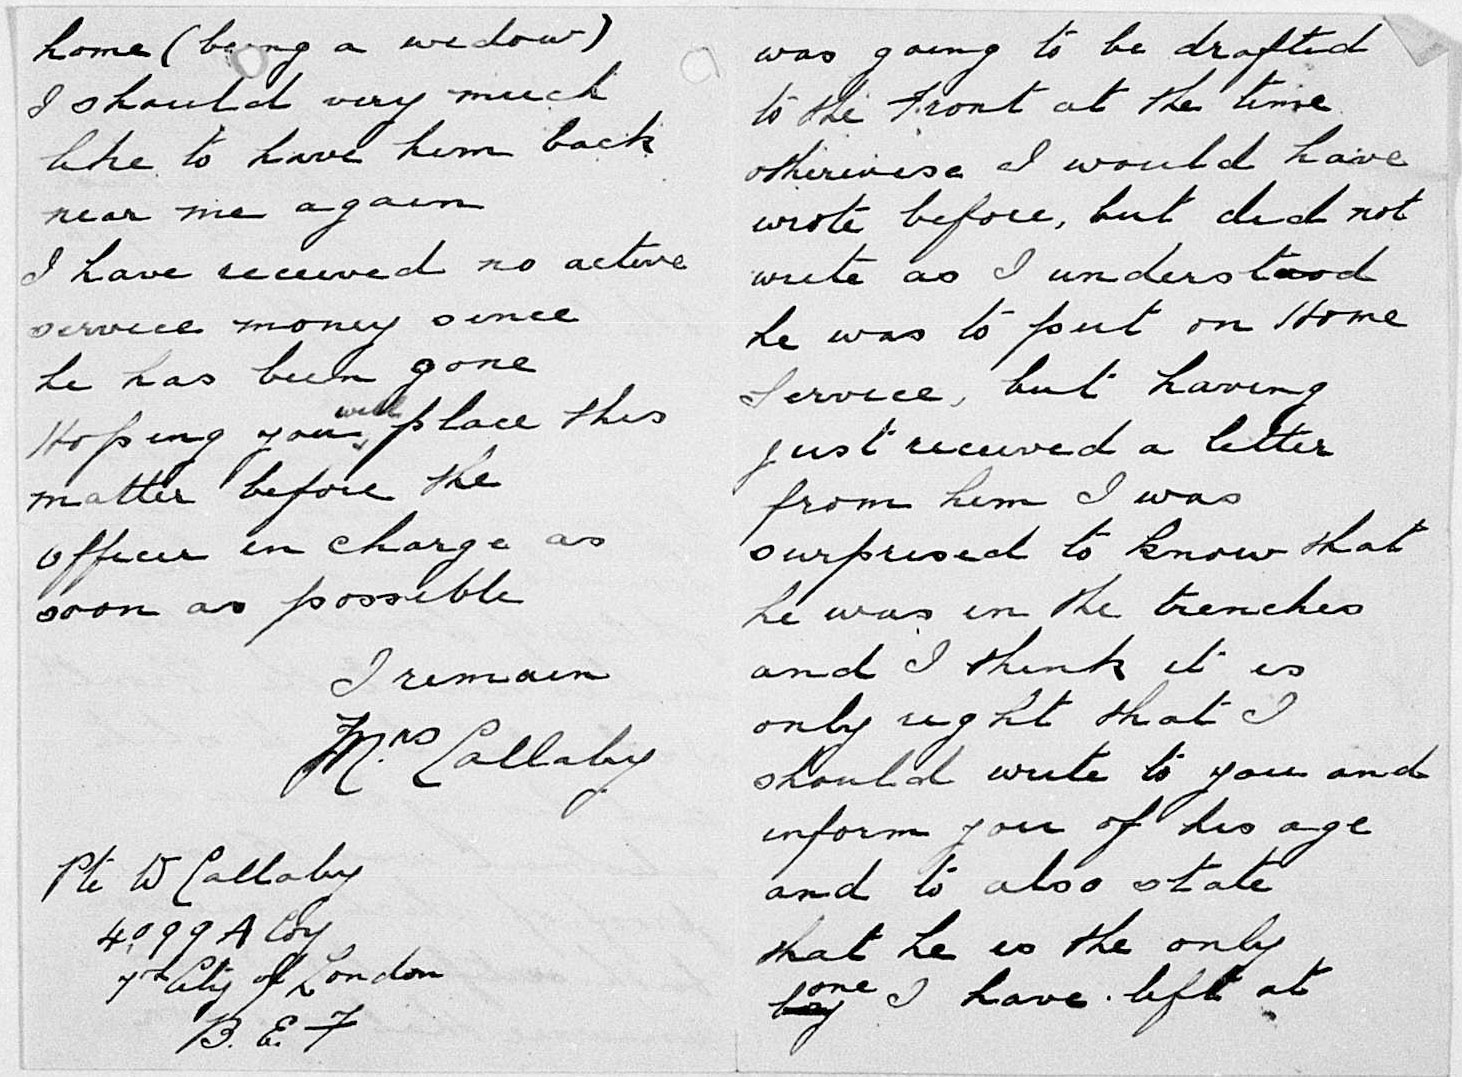 home (being a widow)
I should very much
like to have him back
near me again
I have received no active
service money since
he has been gone
Hoping you will place this
matter before the
officer in charge as
soon as possible
I remain
Mrs Callaby
Pte W Callaby
4099 A Coy
7th City of London
B. E. F
was going to be drafted
to the Front at the time
otherwise I would have
wrote before, but did not
write as I understood
he was to put on Home
Service, but having
just received a letter
from him I was
surprised to know that
he was in the trenches
and I think it is
only right that I
should write to you and
inform you of his age
and to also state
that he is the only
one I have left at